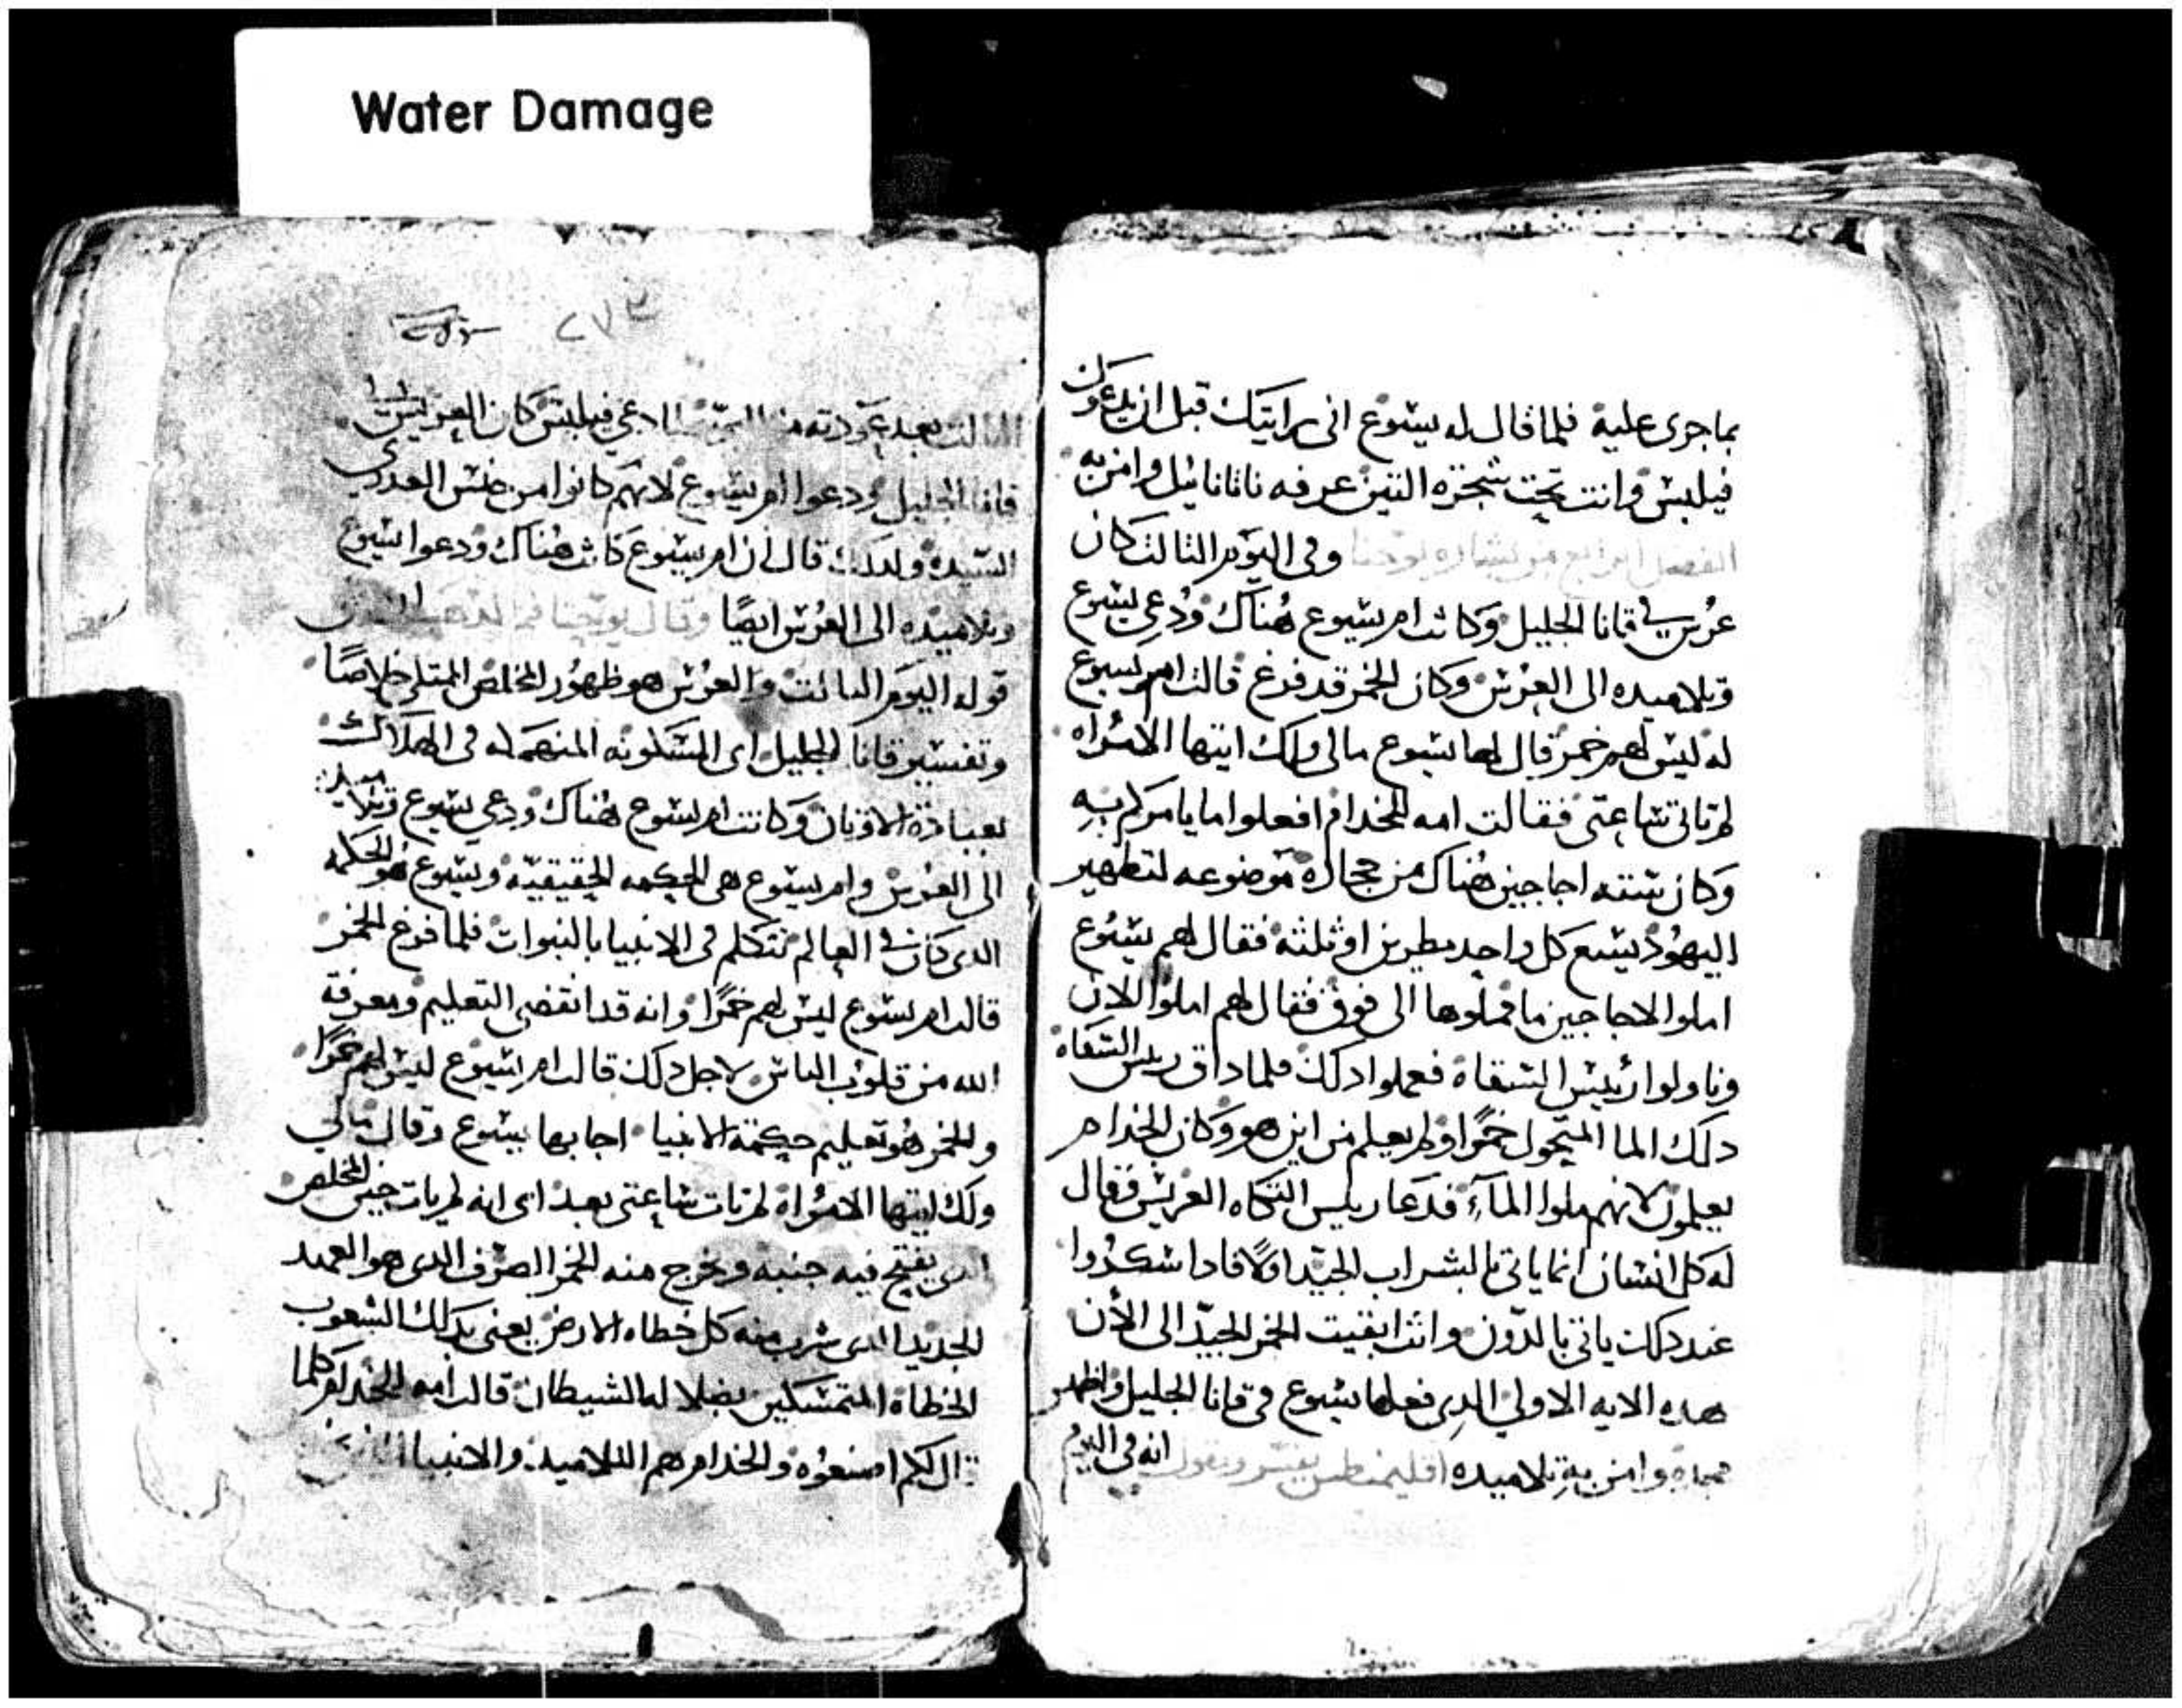 Water Damage
بما جرى عليه فلما قال له يسوع انى رايتك قبل ان يدعوك
فيلبس وانت تحت شجره التين عرفه ناثانائيل وامن به
الفصل الرابع من بشاره يوحنا وفى اليوم الثالث كان
عرس في قانا الجليل وكانت ام يسوع هناك ودعي يسوع
وتلاميده الى العرس وكان الخمر قد فرغ قالت ام يسوع
له ليس لهم خمر قال لها يسوع مالى ولك ايتها الامراه
لم تاتى ساعتى فقالت امه للخدام افعلوا ما يامركم به
وكان سته اجاجين هناك من حجاره موضوعه لتطهير
اليهود يسع كل واحد مطرين او ثلثه فقال لهم يسوع
املوا الاجاجين ما فملوها الى فوق فقال لهم املوا الان
وناولوا رئيس السقاة ففعلوا دلك فلما داق ريس السقاه
دلك الما المتحول خمرا ولم يعلم من اين هو وكان الخدام
يعلمون لانهم ملوا المآء فدعا ريس التكاه العريس فقال
له كل انسان انما ياتى بالشراب الجيد اولا فادا سكروا
عند دلك ياتى بالدون وانت ابقيت الخمر الجيد الى الأن
هده الايه الاولى الدى فعلها يسوع فى قانا الجليل واظهر
مجده وامن به تلاميده اقليمنطس يفسر ويقول انه فى اليوم
٢٧٣
الثالث بعد عودته من دعي فيلبس كان العرس
قانا الجليل ودعوا ام يسوع لانهم كانوا من جنس العدرى
السيده ولدلك قال ان ام يسوع كانت هناك ودعوا يسوع
وتلاميده الى العرس ايضا وقال يوحنا فم الدهب
قوله اليوم الثالث والعرس هو ظهور المخلص الممتلى خلاصا
وتفسير قانا الجليل اى المسكونه المنهمله فى الهلاك
بعبادة الاوتان وكانت ام يسوع هناك ودعي يسوع وتلاميده
الى العرس وام يسوع هى الحكمه الحقيقيه ويسوع هو الحكمه
الدى كان في العالم تتكلم فى الانبيا بالنبوات فلما فرغ الخمر
قالت ام يسوع ليس لهم خمرا وانه قد انقضى التعليم ومعرفة
الله من قلوب الناس لاجل دلك قالت ام يسوع ليس لهم خمرا
والخمر هو تعليم حكمة الانبيا اجابها يسوع وقال مالي
ولك ايتها الامراه لم تات ساعتى بعد اى انه لم يات حين المخلص
الدى يفتح فيه جنبه ويخرج منه الخمر الصرف الدى هو العهد
الجديد الدى شرب منه كل خطاه الارض يعنى بدلك الشعوب
الخطاة المتمسكين بضلالة الشيطان قالت امه للخدام كلما
قال لكم اصنعوه والخدام هم التلاميد والانبيا